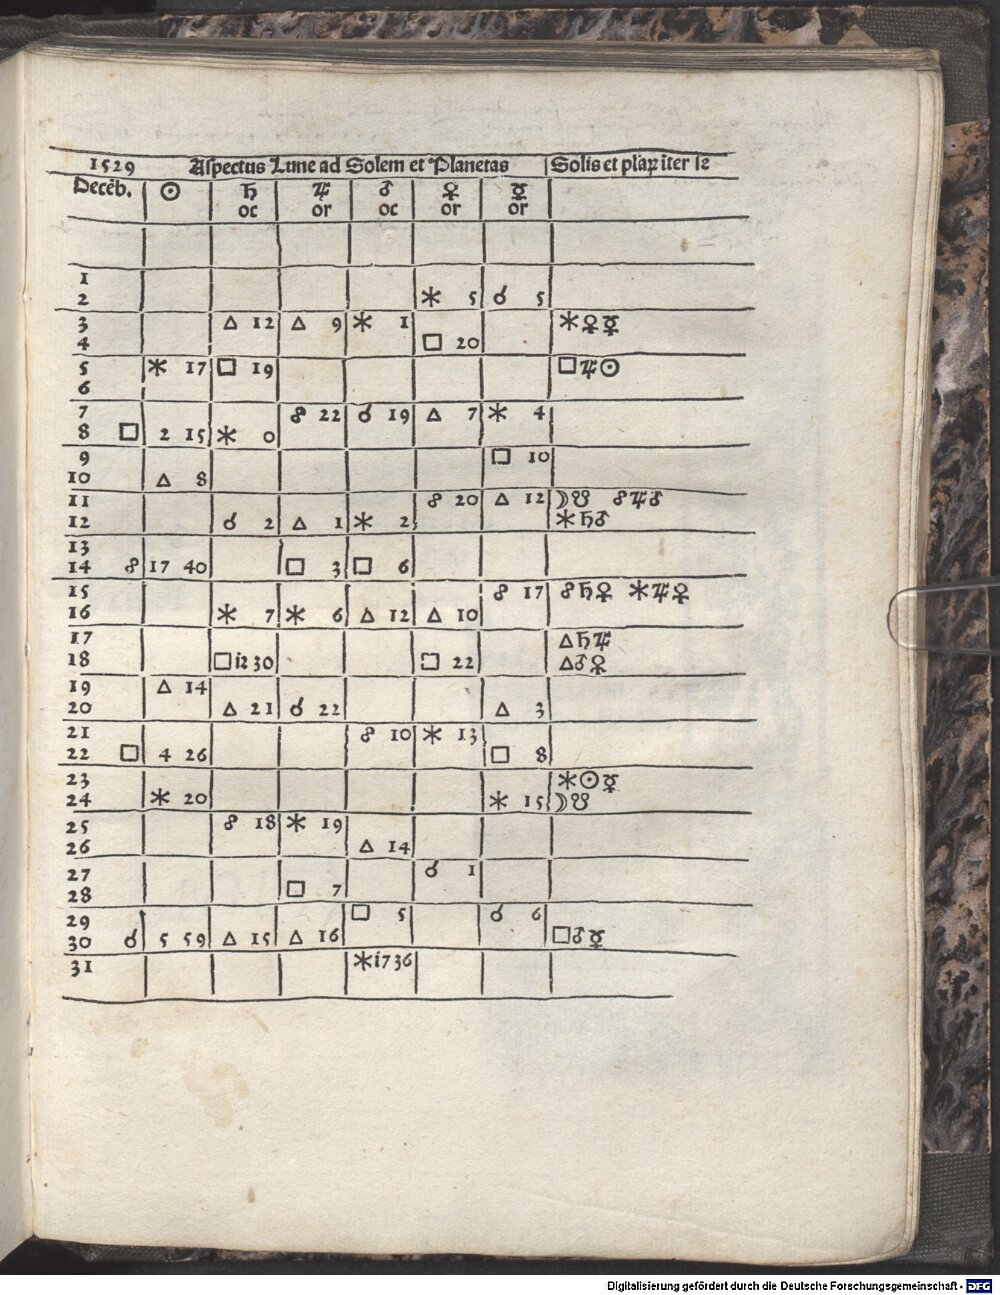 1529 Aspectus Lune ad Solem et Planetas Solis et plaꝝ iter se
Decēb. ☉ ♄ ♃ ♂ ♀ ☿
oc or oc or or
1
2 ⚹ 5 ☌ 5
3 △ 12 △ 9 ⚹ 1 ⚹♀☿
4 □ 20
5 ⚹ 17 □ 19 □♃☉
6
7 ☍ 22 ☌ 19 △ 7 ⚹ 4
8 □ 2 15 ⚹ 0
9 □ 10
10 △ 8
11 ☍ 20 △ 12 ☽☋ ☍♃♂
12 ☌ 2 △ 1 ⚹ 2 ⚹♄♂
13
14 ☍ 17 40 □ 3 □ 6
15 ☍ 17 ☍♄♀ ⚹♃♀
16 ⚹ 7 ⚹ 6 △ 12 △ 10
17 △♄♃
18 □ i2 30 □ 22 △♂♀
19 △ 14
20 △ 21 ☌ 22 △ 3
21 ☍ 10 ⚹ 13
22 □ 4 26 □ 8
23 ⚹☉☿
24 ⚹ 20 ⚹ 15 ☽☋
25 ☍ 18 ⚹ 19
26 △ 14
27 ☌ 1
28 □ 7
29 □ 5 ☌ 6
30 ☌ 5 59 △ 15 △ 16 □♂☿
31 ⚹ i7 36
Digitalisierung gefördert durch die Deutsche Forschungsgemeinschaft - DFG